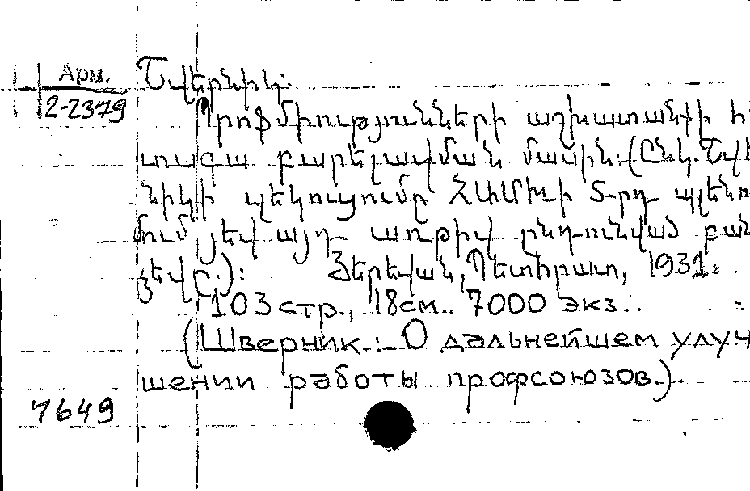 Арм.
2-2379
Շվերնիկ.
Պրոֆմիությունների աշխատանքի հե
տագա բարելավման մասին. (Ընկ. Շվե
նիկի զեկուցումը ՀԱՄԽԻ 5-րդ պլենո
մում յեվ այդ առթիվ ընդունված բան
ձեվը.): Յերեվան, Պետհրատ, 1931.
103 стр., 18см. 7000 экз.
(Шверник. О дальнейшем улуч
шении работы профсоюзов.)
7649